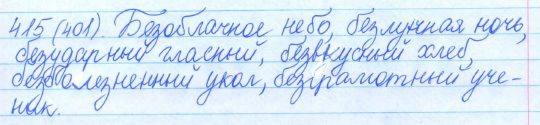 415 (401). Безоблачное небо, безлунная ночь,
безударный гласный, безвкусный хлеб,
безболезненный укол, безграмотный уче-
ник.